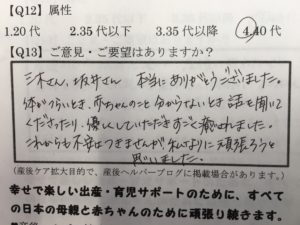 【Q12】属性
1.20 代 2.35 代以下 3.35 代以降 4.40 代
【Q13】ご意見・ご要望はありますか?
三木さん、坂井さん 本当にありがとうございました。
体がつらいとき、赤ちゃんのこと分からないとき 話を聞いて
くださったり、優しくしていただきすごく癒されました。
これからも不安はつきませんが 私なりに頑張ろうと
思いました。
(産後ケア拡大目的で、産後ヘルパーブログに掲載場合があります。)
幸せで楽しい出産・育児サポートのために、すべて
の日本の母親と赤ちゃんのために頑張り続きます。